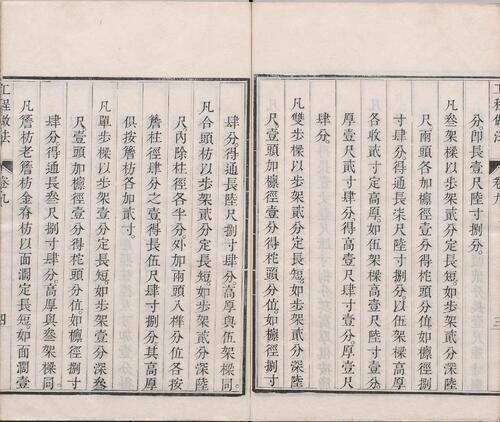 工程做法
卷九
三
分卽長壹尺陸寸捌分。
凡叁架樑以步架貳分定長短。如步架貳分深陸
尺兩頭各加檁徑壹分得柁頭分位。如檁徑捌
寸肆分。得通長柒尺陸寸捌分。以伍架樑高厚
各收貳寸定高厚。如伍架樑高壹尺陸寸壹分。
厚壹尺貳寸肆分。得高壹尺肆寸壹分。厚壹尺
肆分。
凡雙步樑以步架貳分定長短。如步架貳分深陸
尺。壹頭加檁徑壹分得柁頭分位。如檁徑捌寸
肆分。得通長陸尺捌寸肆分。高厚與伍架樑同。
凡合頭枋以步架貳分定長短。如步架貳分深陸
尺。內除柱徑各半分。外加兩頭入榫分位各按
簷柱徑肆分之壹。得長伍尺肆寸捌分。其高厚
俱按簷枋各加貳寸。
凡單步樑以步架壹分定長短。如步架壹分深叁
尺。壹頭加檁徑壹分得柁頭分位。如檁徑捌寸
肆分。得通長叁尺捌寸肆分。高厚與叁架樑同。
凡簷枋老簷枋金脊枋以面濶定長短。如面濶壹
工程做法
卷九
四